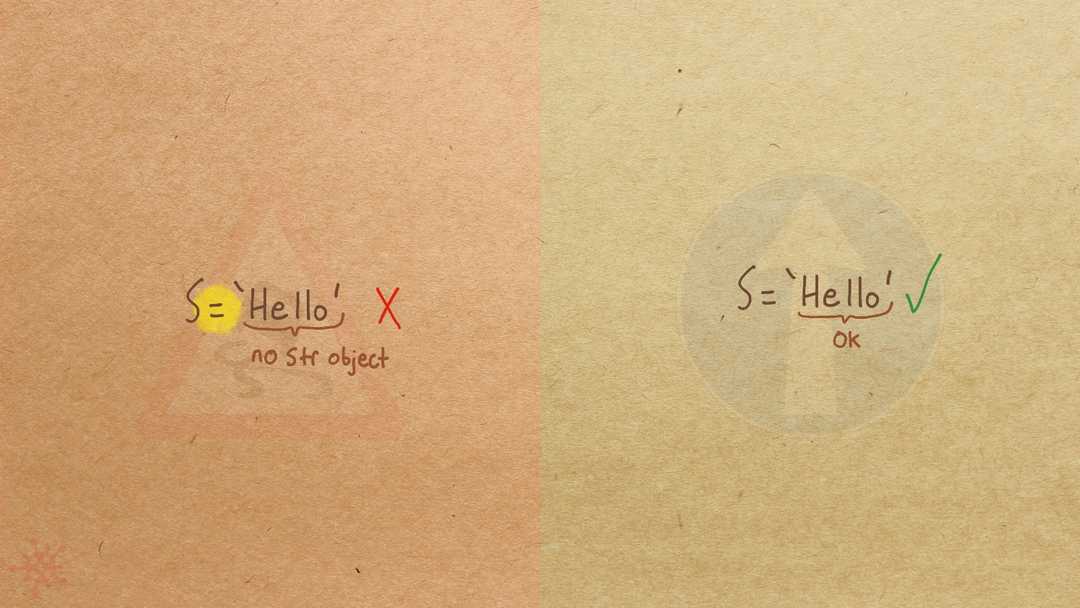 S = `Hello' X
no str object
S = `Hello' ✓
ok